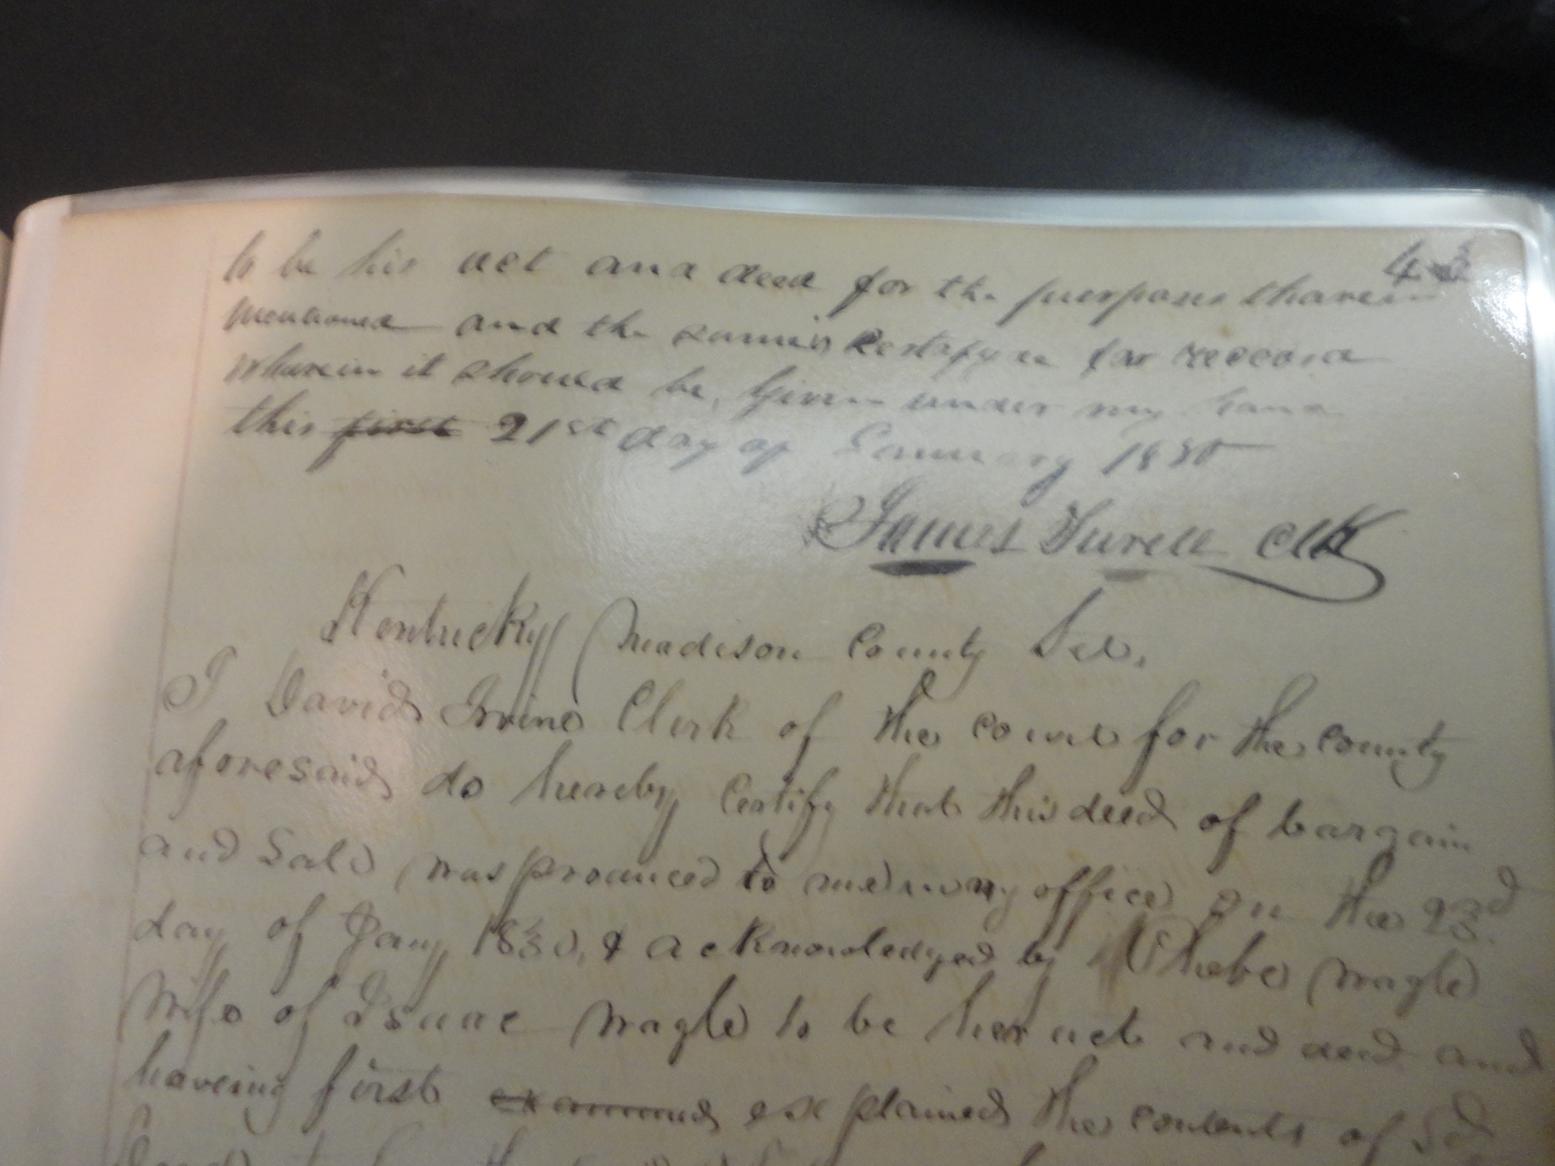 43
to be his act and deed for the purposes therein
mentioned and the same is certifyed for record
wherein it should be, Given under my hand
this first 21st day of January 1830
James Turell Clk
Kentucky Madison County Sct.
I David Irvine Clerk of the court for the county
aforesaid do hereby certify that this deed of bargain
and Sale was produced to me in my office on the 23d
day of Jany 1830, & acknowledged by Phebe Nagle
wife of Isaac Nagle to be her act and deed and
haveing first examined explained the contents of Sd